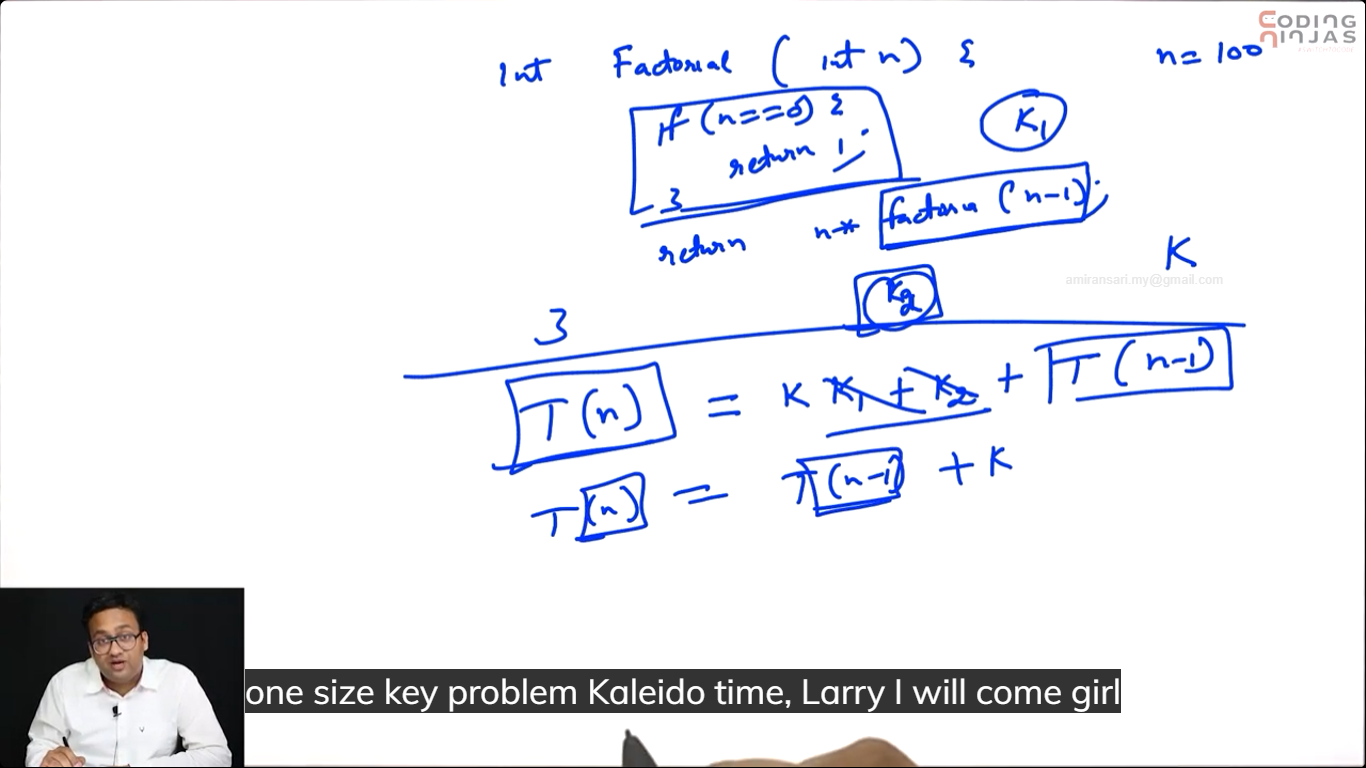 CODING
NINJAS
Int Factorial ( int n) {
n = 100
if (n==0) {
return 1;
K1
}
return n* factoria (n-1);
K2
K
amiransari.my@gmail.com
}
T(n) = K K1 + K2 + T(n-1)
T(n) = T(n-1) + K
one size key problem Kaleido time, Larry I will come girl